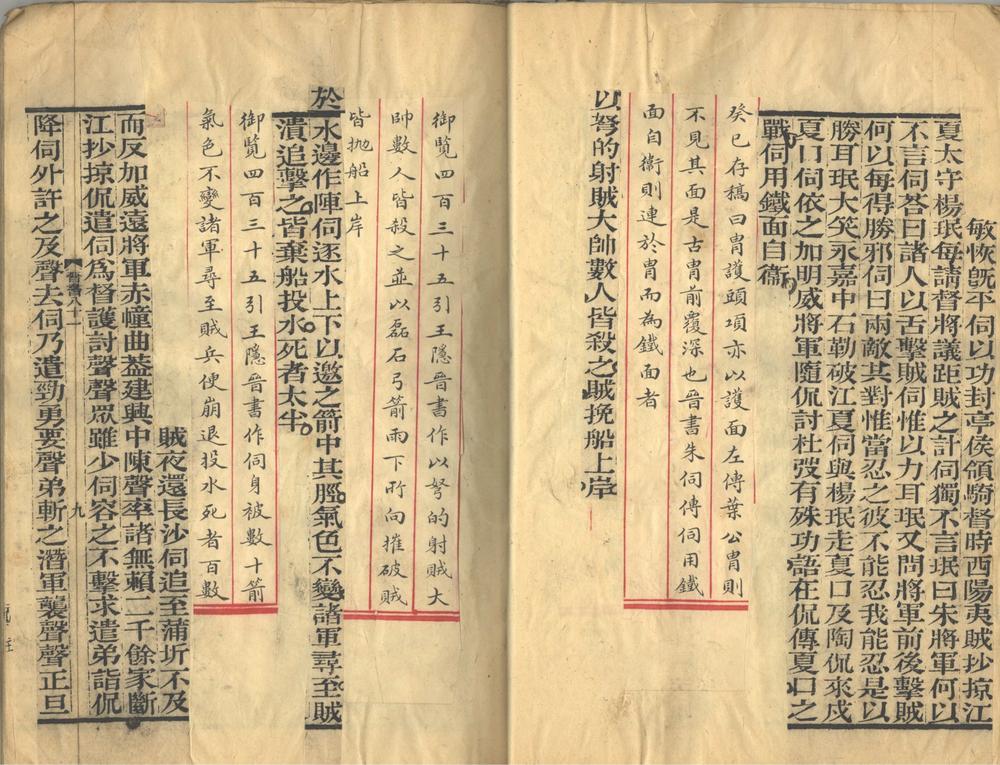 敏恢旣平伺以功封亭侯領騎督時西陽夷賊抄掠江
夏太守楊珉每請督將議距賊之計伺獨不言珉曰朱將軍何以
不言伺荅曰諸人以舌擊賊伺惟以力耳珉又問將軍前後擊賊
何以每得勝邪伺曰兩敵共對惟當忍之彼不能忍我能忍是以
勝耳珉大笑永嘉中石勒破江夏伺與楊珉走夏口及陶侃來戍
夏口伺依之加明威將軍隨侃討杜弢有殊功語在侃傳夏口之
戰伺用鐵面自衞
癸巳存稿曰冑護頭項亦以護面左傳葉公冑則
不見其面是古冑前覆深也晉書朱伺傳伺用鐵
面自衞則連於冑而為鐵面者
以弩的射賊大帥數人皆殺之賊挽船上岸
御覽四百三十五引王隱晉書作以弩的射賊大
帥數人皆殺之並以磊石弓箭雨下所向摧破賊
皆拋船上岸
於水邊作陣伺逐水上下以邀之箭中其脛氣色不變諸軍尋至賊
潰追擊之皆棄船投水死者太半
御覽四百三十五引王隱晉書作伺身被數十箭
氣色不變諸軍尋至賊兵便崩退投水死者百數
賊夜還長沙伺追至蒲圻不及
而反加威遠將軍赤幢曲葢建興中陳聲率諸無賴二千餘家斷
江抄掠侃遣伺爲督護討聲聲眾雖少伺容之不擊求遣弟詣侃
降伺外許之及聲去伺乃遣勁勇要聲弟斬之潛軍襲聲聲正旦
晉書八十一
九